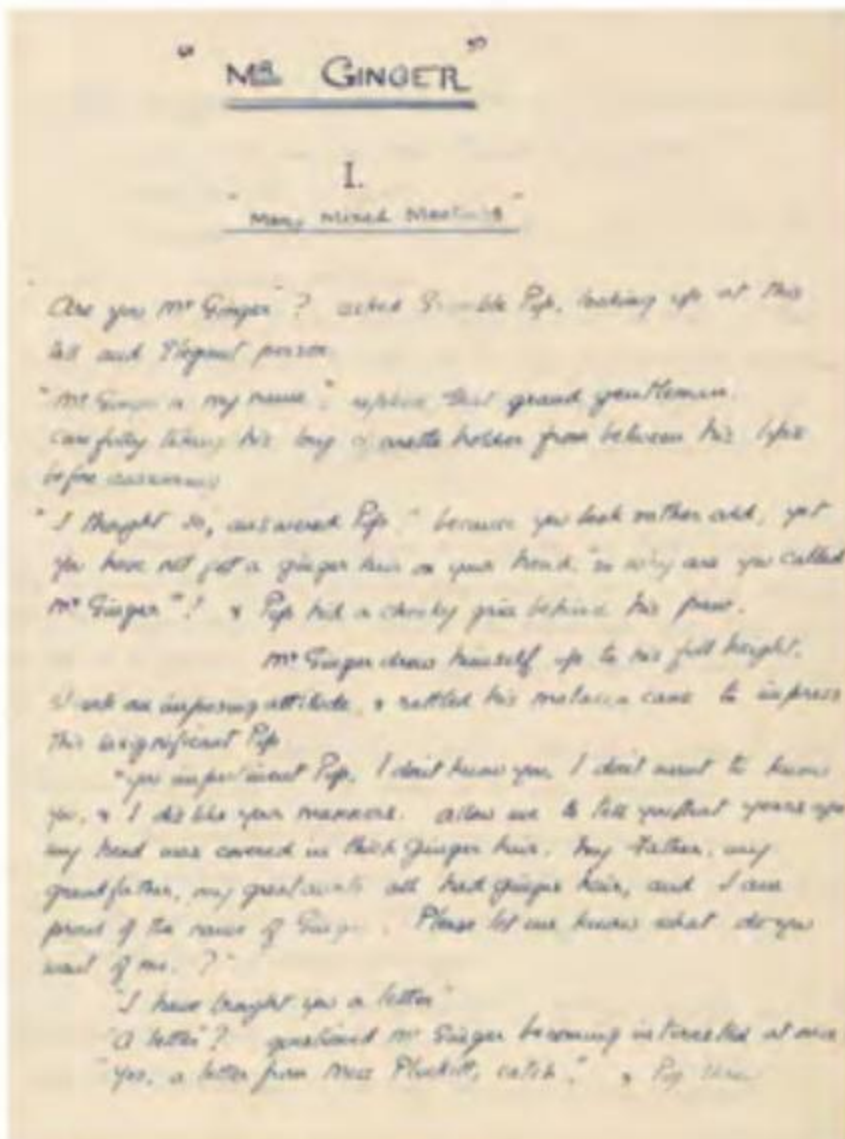 "Mr GINGER"
I.
"Many Mixed Meetings"
"Are you Mr Ginger"? asked Pip, looking up at this
tall and elegant person.
"Mr Ginger is my name," replied that grand gentleman.
Carefully taking his long cigarette holder from between his lips
before answering
"I thought so, answered Pip," because you look rather odd, yet
you have not got a ginger hair on your head, "so why are you called
Mr Ginger"? & Pip hid a cheeky grin behind his paw.
Mr Ginger drew himself up to his full height,
struck an imposing attitude, & rattled his malacca cane to impress
this insignificant Pip
"You impertinent Pip, I don't know you, I don't want to know
you, & I dislike your manners. Allow me to tell you that years ago
my head was covered in thick ginger hair. My Father, my
grandfather, my great aunts all had ginger hair, and I am
proud of the name of Ginger. Please let me know what do you
want of me. ?"
"I have brought you a letter"
"A letter"? questioned Mr Ginger becoming interested at once
"Yes, a letter from Miss, catch." & Pip threw